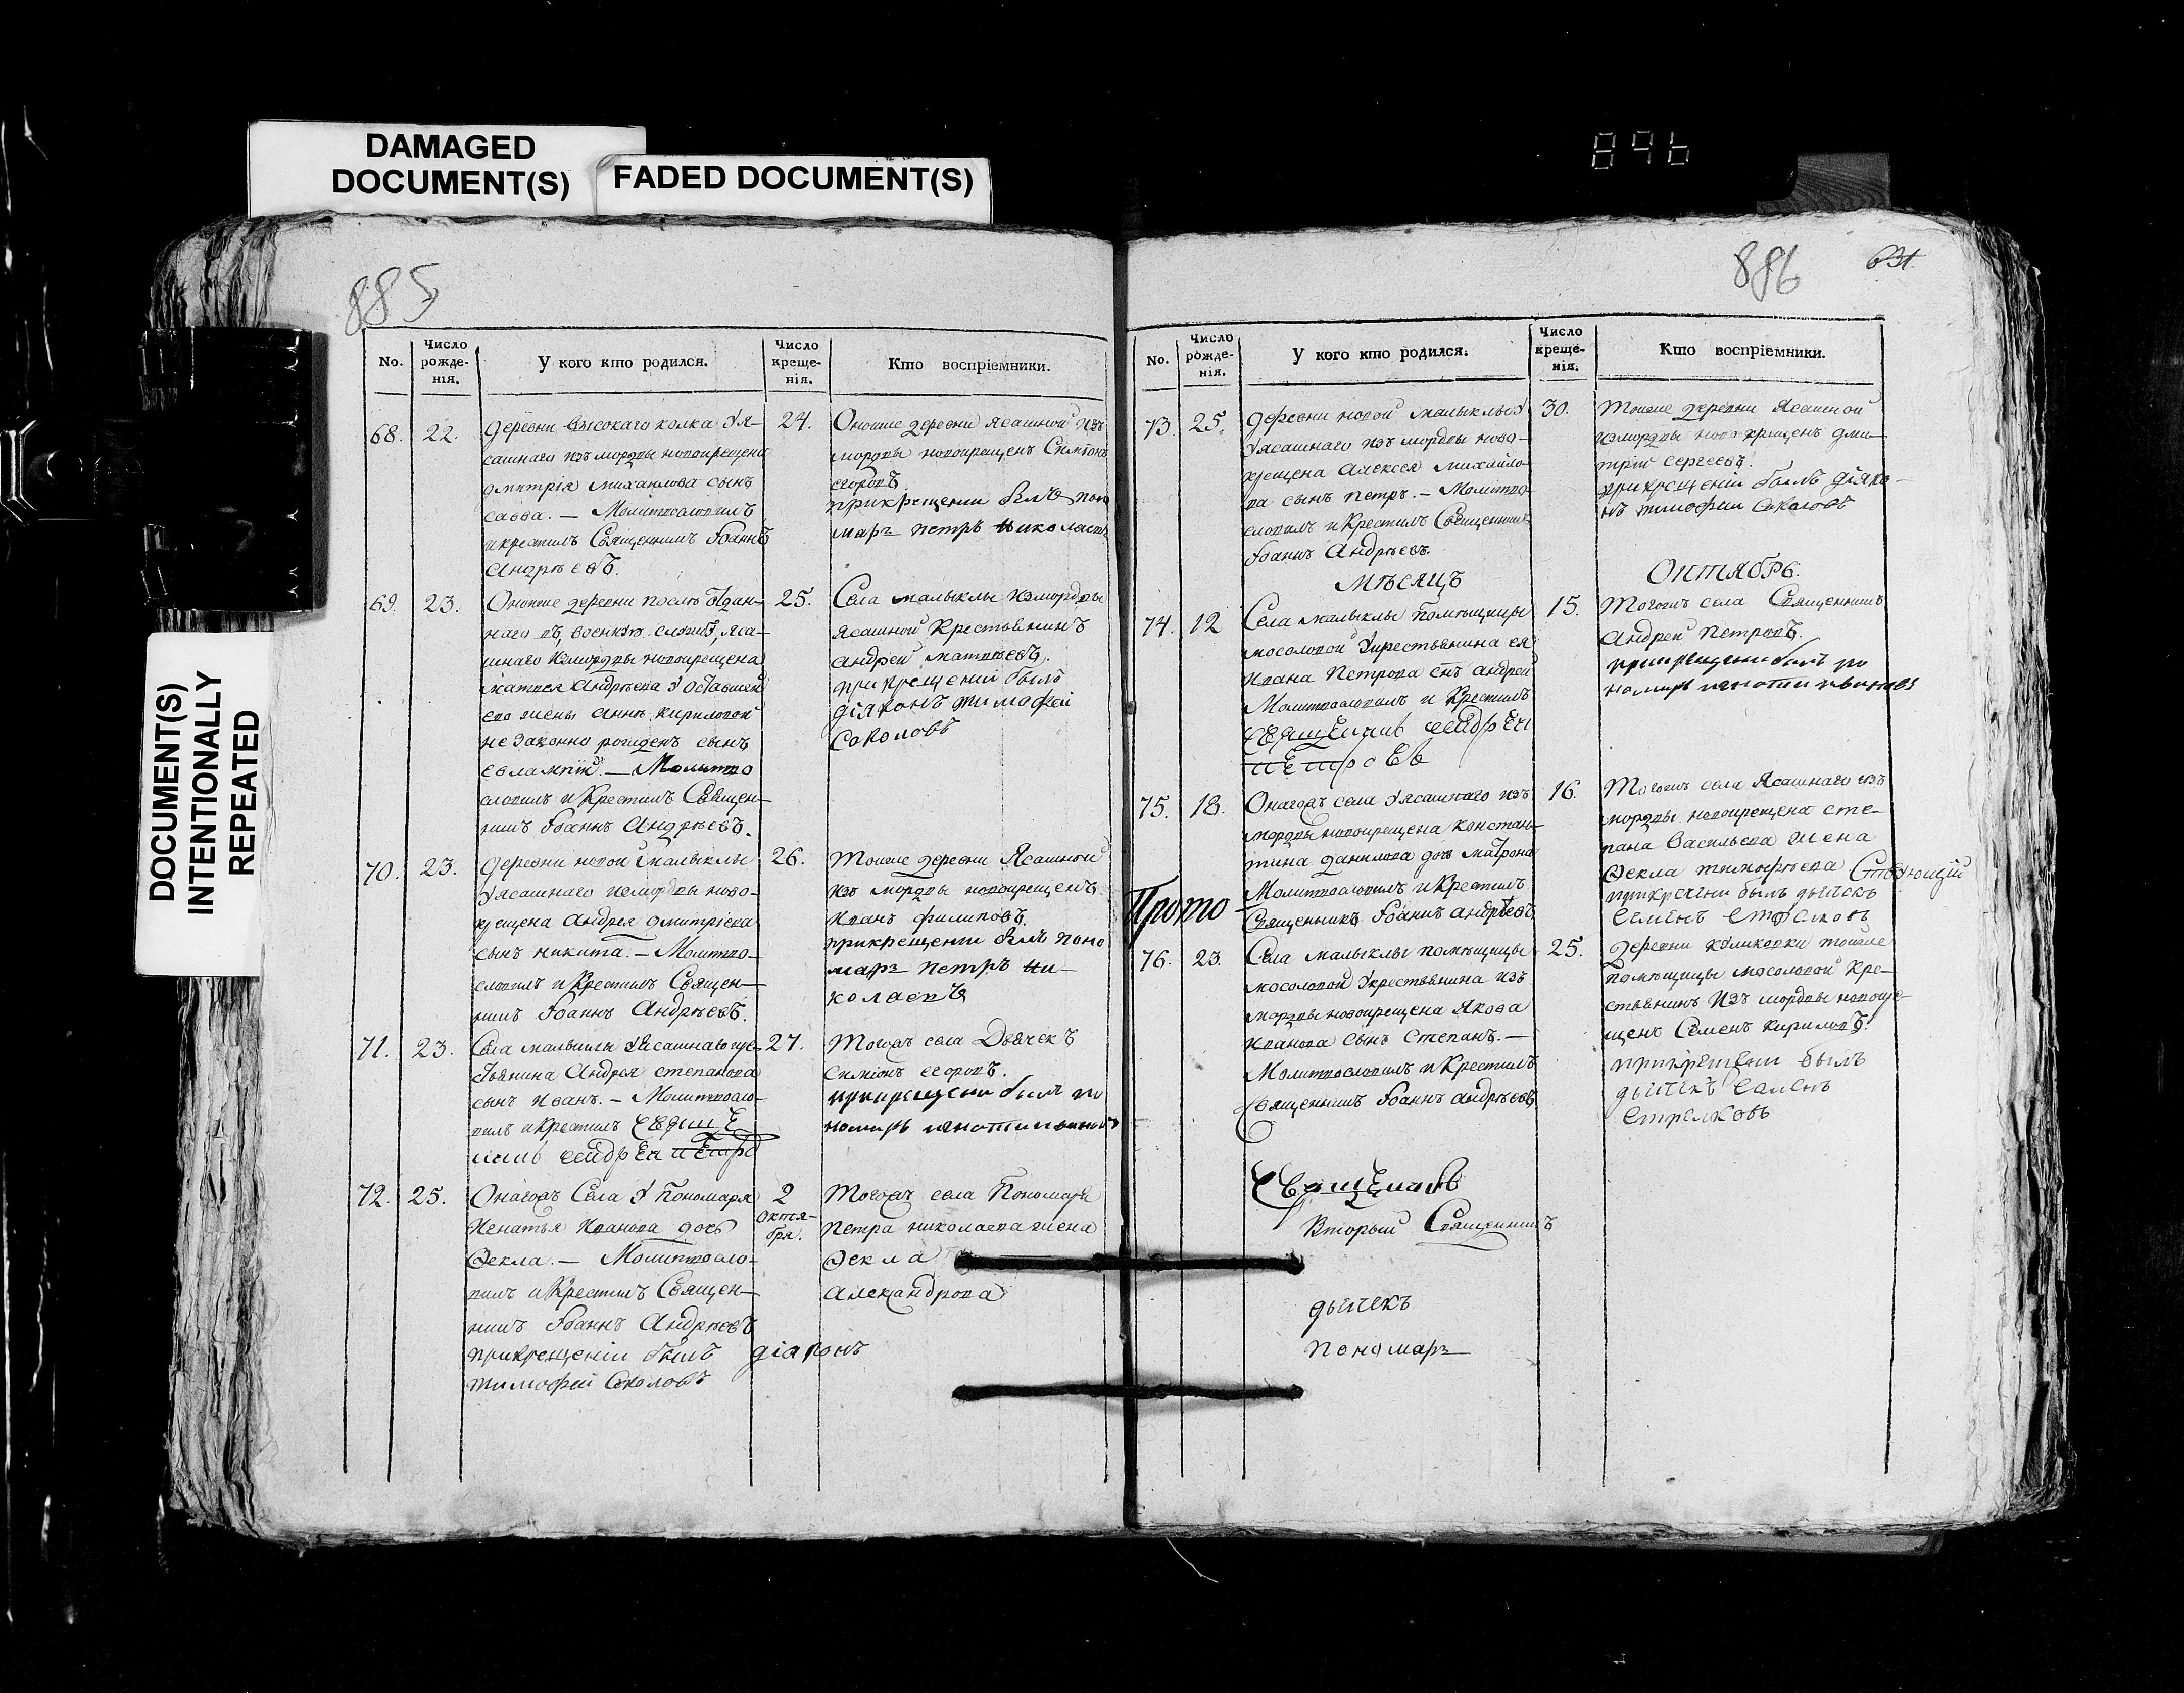 DAMAGED
DOCUMENT(S)
FADED DOCUMENT(S)
896
DOCUMENT(S)
INTENTIONALLY
REPEATED
885
No.
Число
рожде-
нія.
У кого кто родился.
Число
креще-
нія.
Кто воспріемники.
68.
22.
деревни высокаго колка Уя-
сашнаго изъ мордвы новокрещена
дмитрія михаилова сынъ
савва. — Молитвословилъ
икрестилъ Священникъ Іоаннъ
Андрѣевъ.
24.
Оноиже деревни Ясашной изъ
мордвы новокрещенъ Симионъ
егоровъ
прикрещении былъ поно
марь петръ николаевъ
69.
23.
Оноиже деревни послѣ отдан-
наго въ военную службу, яса-
шнаго измордвы новокрещена
матвея андрѣева У оставшей
его жены анны кириловой
не законно рожденъ сынъ
евлампій. — Молитво
словилъ иКрестилъ Священ-
никъ Іоаннъ Андрѣевъ.
25.
Села малыклы измордвы
ясашной Крестьянинъ
андрей матвѣевъ.
прикрещении былъ
діяконъ тимофей
Соколовъ
70.
23.
деревни новой малыклы
Уясашнаго измордвы ново-
крещена андрея дмитріева
сынъ никита. — Молитво-
словилъ иКрестилъ Священ-
никъ Іоаннъ Андрѣевъ.
26.
Тоиже деревни Ясашной
изъ мордвы новокрещенъ
иванъ филиповъ
прикрещении былъ поно
марь петръ ни-
колаевъ
71.
23.
Села малыклы Уясашнаго кре-
стьянина Андрея степанова
сынъ иванъ. — Молитвосло-
вилъ иКрестилъ Свяще
никъ андреи петро
27.
Тогожъ села Дьячекъ
симионъ егоровъ.
прикрещени былъ по
номарь игнатий ивановъ
72.
25.
Онагожъ Села У Пономаря
Игнатья Иванова дочь
Ѳекла. — Молитвосло-
вилъ иКрестилъ Священ-
никъ Іоаннъ Андрѣевъ
прикрещеніи былъ діяконъ
тимофей Соколовъ
2
октя-
бря.
Тогожъ села Пономаря
петра николаева жена
Ѳекла
александрова
886
631
No.
Число
рожде-
нія.
У кого кто родился.
Число
креще-
нія.
Кто воспріемники.
73.
25.
деревни новой малыклы
Уясашнаго изъ мордвы ново-
крещена алексея михаило-
ва сынъ петръ. — Молитво
словилъ иКрестилъ Священникъ
Іоаннъ Андрѣевъ.
30.
Тоиже деревни Ясашной
измордвы новокрещенъ дми-
трій сергеевъ.
прикрещеніи былъ діяко-
нъ тимофеи Соколовъ
Мѣсяцъ
Октябрь.
74.
12
Села малыклы Помѣщицы
мосоловой Укрестьянина ея
ивана Петрова снъ андрей
Молитвословилъ и Крестилъ
священникъ андреи
петровъ
15.
Тогожъ села Священникъ
андрей петровъ.
прикрещени былъ по
номарь игнатии ивановъ
75.
18.
Онагожъ села Уясашнаго изъ
мордвы новокрещена констан-
тина данилова дочь матрона
Молитвословилъ иКрестилъ
Священникъ Іоаннъ андрѣевъ
16.
Тогожъ села Ясашнаго изъ
мордвы новокрещена сте-
пана васильева жена
Ѳекла тимофѣева
прикрещени былъ дьячекъ
Семенъ Стрелковъ
Прото
76.
23.
Села малыклы помѣщицы
мосоловой Укрестьянина изъ
мордвы новокрещена Якова
иванова сынъ степанъ. —
Молитвословилъ иКрестилъ
Священникъ Іоаннъ андрѣевъ
25.
деревни куликовки тоиже
Помѣщицы мосоловой Кре-
стьянинъ изъ мордвы новокре-
щенъ Семенъ кириловъ.
прикрещени былъ
дьячекъ Семенъ
Стрелковъ
Священникъ
Вторый Священникъ
дьячекъ
пономарь